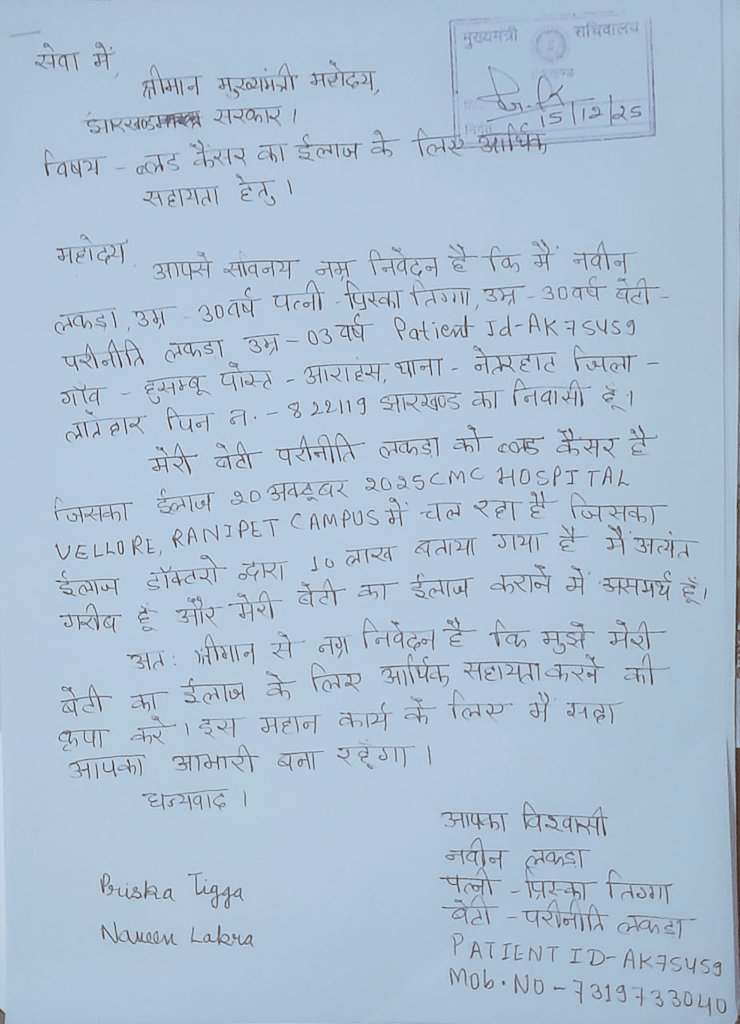 मुख्यमंत्री सचिवालय
15/12/25
सेवा में,
श्रीमान मुख्यमंत्री महोदय,
झारखण्ड सरकार।
विषय - ब्लड कैंसर का ईलाज के लिए आर्थिक
सहायता हेतु।
महोदय,
आपसे सविनय नम्र निवेदन है कि मैं नवीन
लकड़ा, उम्र - 30 वर्ष पत्नी - प्रिस्का तिग्गा, उम्र - 30 वर्ष बेटी -
परीनीति लकड़ा उम्र - 03 वर्ष Patient Id-AK75459
गाँव - हुसम्बू पोस्ट - आराहंस, थाना - नेतरहाट जिला -
लातेहार पिन न. - 822119 झारखण्ड का निवासी हूँ।
मेरी बेटी परीनीति लकड़ा को ब्लड कैंसर है
जिसका ईलाज 20 अक्टूबर 2025 CMC HOSPITAL
VELLORE, RANIPET CAMPUS में चल रहा है जिसका
ईलाज डॉक्टरो द्वारा 10 लाख बताया गया है मैं अत्यंत
गरीब हूँ और मेरी बेटी का ईलाज कराने में असमर्थ हूँ।
अत: श्रीमान से नम्र निवेदन है कि मुझे मेरी
बेटी का ईलाज के लिए आर्थिक सहायता करने की
कृपा करें। इस महान कार्य के लिए मैं सदा
आपका आभारी बना रहूँगा।
धन्यवाद।
आपका विश्वासी
नवीन लकड़ा
पत्नी - प्रिस्का तिग्गा
बेटी - परीनीति लकड़ा
PATIENT ID-AK75459
MOB.NO - 7319733040
Priska Tigga
Naveen Lakra